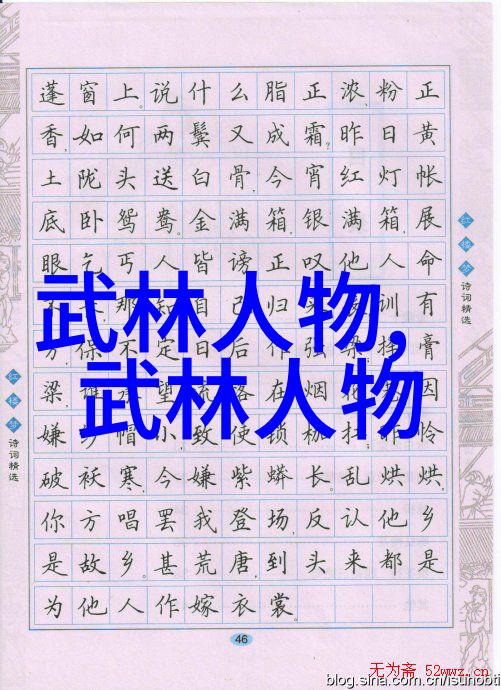 蓬窗上。说什么脂正浓、粉正
香,如何两鬓又成霜?昨日黄
土陇头送白骨,今宵红灯帐
底卧鸳鸯。金满箱,银满箱,展
眼乞丐人皆谤。正叹他人命
那知自己归训有
方,保不定日后作强
梁,望在烟因
嫌帽小,致使锁枷扛;昨怜
破袄寒,今嫌紫蟒长。乱烘烘,
你方唱罢我登场,反认他乡
是故乡。甚荒唐,到头来都是
为他人作嫁衣裳。
武林人物,
武林人物
红楼梦诗词精选
红楼梦诗词精选
46
无为斋 52wwz.cn